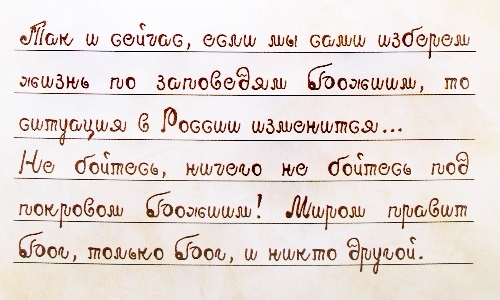 Так и сейчас, если мы сами изберем
жизнь по заповедям Божиим, то
ситуация в России изменится...
Не бойтесь, ничего не бойтесь под
покровом Божиим! Миром правит
Бог, только Бог, и никто другой.